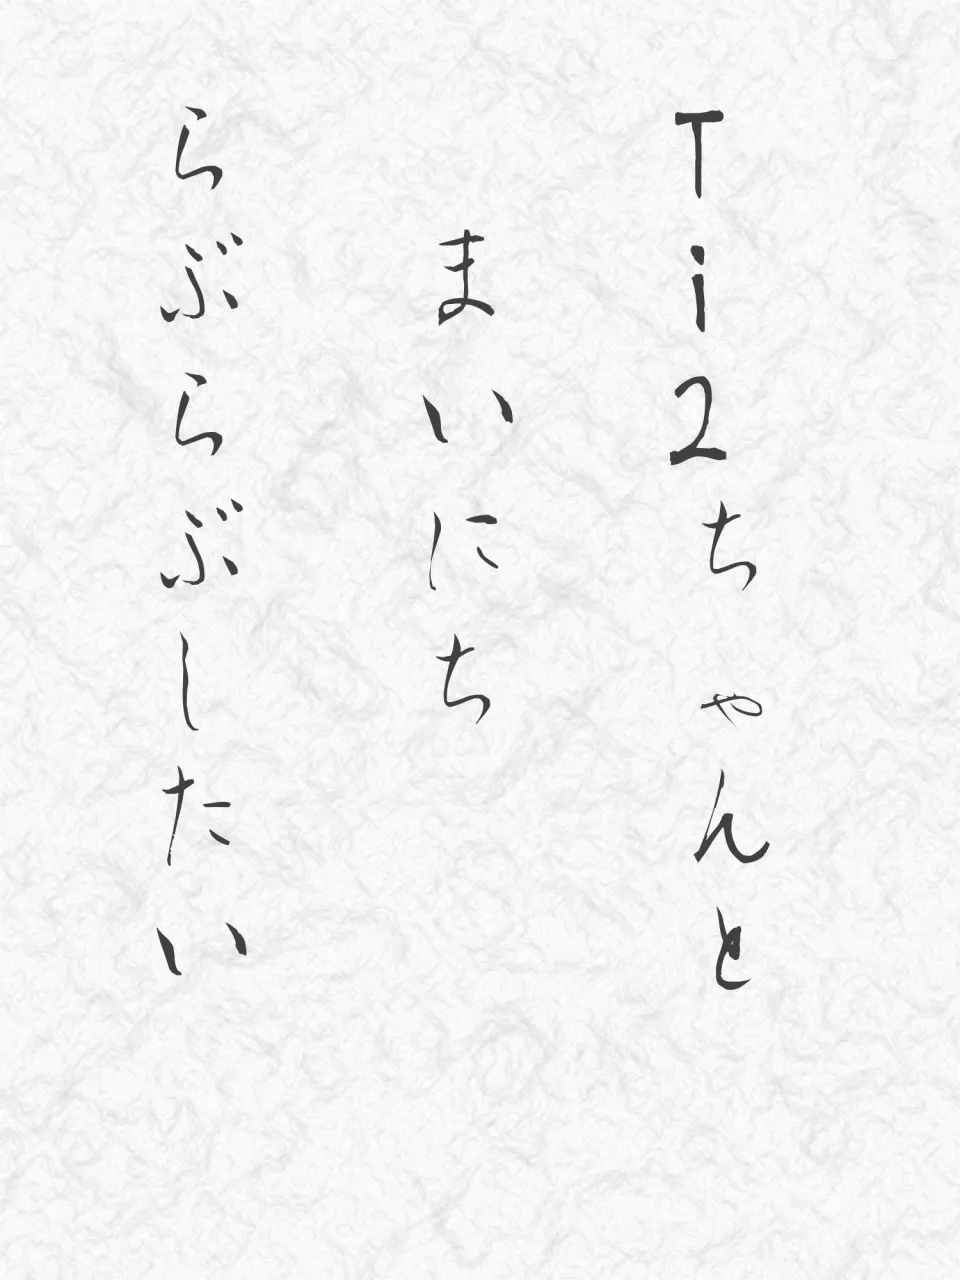 Ti2ちゃんと
まいにち
らぶらぶしたい